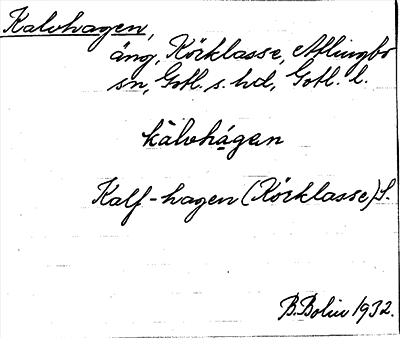 Kalvhagen,
äng, Körklasse, Atlingbo
sn, Gotl. s. hd, Gotl. l.
kàlvhágen
Kalf-hagen (Körklasse) S.
B. Bolin 1932.